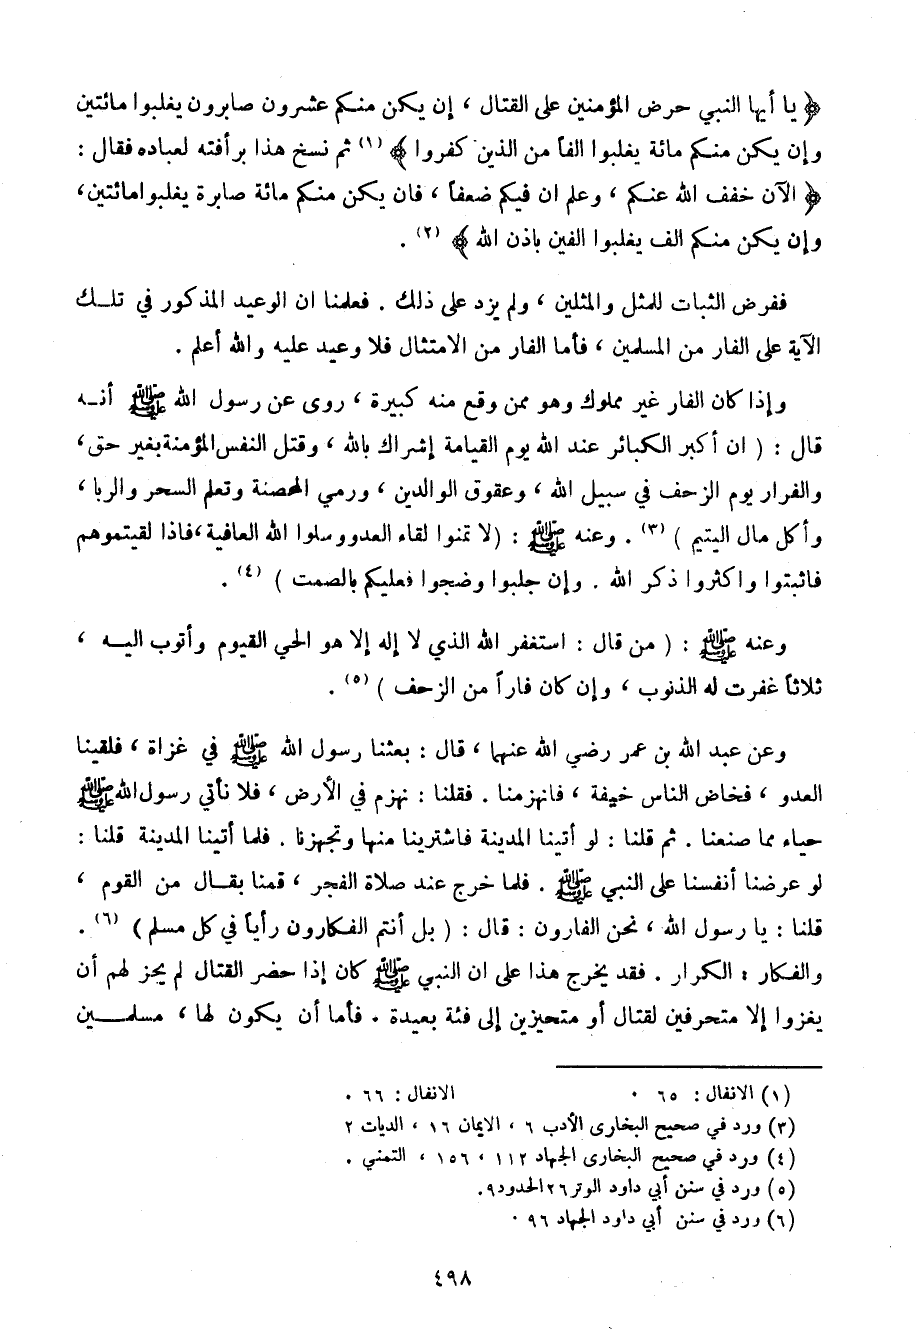 ﴿ يا أيها النبي حرض المؤمنين على القتال ، إن يكن منكم عشرون صابرون يغلبوا مائتين
وإن يكن منكم مائة يغلبوا الفاً من الذين كفروا ﴾ (١) ثم نسخ هذا برأفته لعباده فقال :
﴿ الآن خفف الله عنكم ، وعلم ان فيكم ضعفاً ، فان يكن منكم مائة صابرة يغلبوا مائتين ،
وإن يكن منكم الف يغلبوا الفين باذن الله ﴾ (٢) .
ففرض الثبات للمثل والمثلين ، ولم يزد على ذلك . فعلمنا ان الوعيد المذكور في تلك
الآية على الفار من المسلمين ، فأما الفار من الامتثال فلا وعيد عليه والله أعلم .
وإذا كان الفار غير مملوك وهو ممن وقع منه كبيرة ، روى عن رسول الله ﷺ أنه
قال : ( ان أكبر الكبائر عند الله يوم القيامة إشراك بالله ، وقتل النفس المؤمنة بغير حق ،
والفرار يوم الزحف في سبيل الله ، وعقوق الوالدين ، ورمي المحصنة وتعلم السحر والربا ،
وأكل مال اليتيم ) (٣) . وعنه ﷺ : (لا تمنوا لقاء العدو وسلوا الله العافية ، فاذا لقيتموهم
فاثبتوا واكثروا ذكر الله . وإن جلبوا وضجوا فعليكم بالصمت ) (٤) .
وعنه ﷺ : ( من قال : استغفر الله الذي لا إله إلا هو الحي القيوم وأتوب اليه ،
ثلاثاً غفرت له الذنوب ، وإن كان فاراً من الزحف ) (٥) .
وعن عبد الله بن عمر رضي الله عنهما ، قال : بعثنا رسول الله ﷺ في غزاة ، فلقينا
العدو ، فخاض الناس خيفة ، فانهزمنا . فقلنا : نهزم في الأرض ، فلا نأتي رسول الله ﷺ
حياء مما صنعنا . ثم قلنا : لو أتينا المدينة فاشترينا منها وتجهزنا . فلما أتينا المدينة قلنا :
لو عرضنا أنفسنا على النبي ﷺ . فلما خرج عند صلاة الفجر ، قمنا بقال من القوم ،
قلنا : يا رسول الله ، نحن الفارون : قال : ( بل أنتم الفكارون رأياً في كل مسلم ) (٦) .
والفكار : الكرار . فقد يخرج هذا على ان النبي ﷺ كان إذا حضر القتال لم يجز لهم أن
يغزوا إلا متحرفين لقتال أو متحيزين إلى فئة بعيدة . فأما أن يكون لها ، مسلمين
(١) الانفال : ٦٥ . الانفال : ٦٦ .
(٣) ورد في صحيح البخارى الأدب ٦ ، الايمان ١٦ ، الديات ٢
(٤) ورد في صحيح البخارى الجهاد ١١٢ ، ١٥٦ ، التمني .
(٥) ورد في سنن أبي داود الوتر ٢٦ الحدود ٩ .
(٦) ورد في سنن أبي داود الجهاد ٩٦ .
٤٩٨